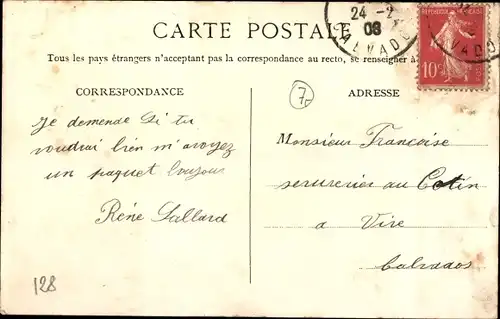 CARTE POSTALE
24 -2
08
CALVADOS
10c
VADO
Tous les pays étrangers n'acceptant pas la correspondance au recto, se renseigner à
CORRESPONDANCE
ADRESSE
Je demende Si tu
voudrai bien m'avoyez
un paquet
Réne Lallard
Monsieur Francoise
serrurerier au
a Vire
Calvados
128